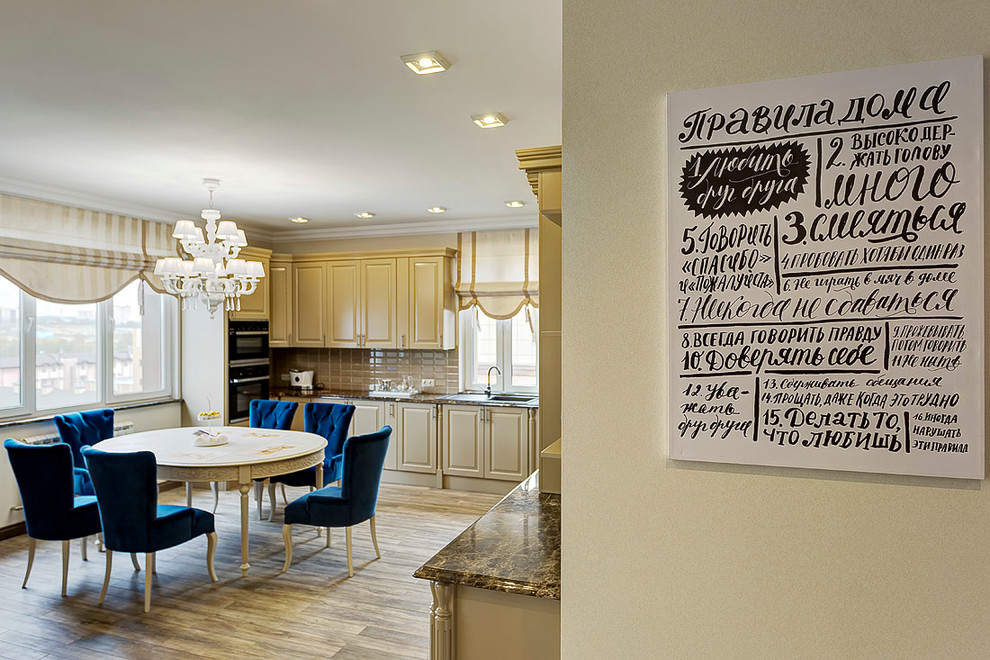 Правила дома
1. Любить
друг друга
2. ВЫСОКО ДЕР-
ЖАТЬ ГОЛОВУ
5. Говорить
«СПАСИБО»
и «ПОЖАЛУЙСТА»
много
3. Смеяться
4. ПРОБОВАТЬ ХОТЯ БЫ ОДИН РАЗ
6. Не играть в мяч в доме
7. Никогда не сдаваться
8 ВСЕГДА ГОВОРИТЬ ПРАВДУ
10. Доверять себе
9. ПРОЖЕВЫВАТЬ,
ПОТОМ ГОВОРИТЬ
И НЕ НЫТЬ
12. Ува-
жать
друг друга
13. Сдерживать обещания
14. ПРОЩАТЬ, ДАЖЕ КОГДА ЭТО ТРУДНО
15. Делать то,
ЧТО ЛЮБИШЬ
16. ИНОГДА
НАРУШАТЬ
ЭТИ ПРАВИЛА